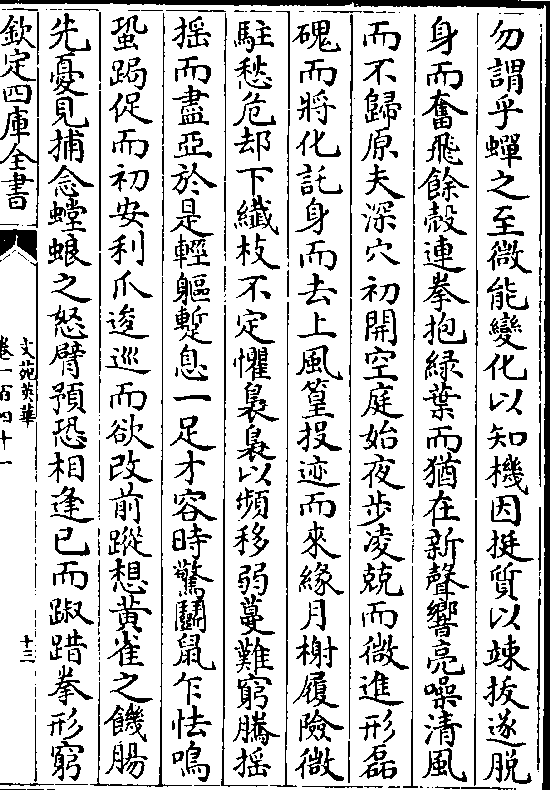 勿謂乎蟬之至微能變化以知機因挺質以竦拔遂脱
身而奮飛餘殻連拳抱綠葉而猶在新聲響亮噪清風
而不歸原夫深穴初開空庭始夜步凌兢而微進形磊
磈而將化託身而去上風篁投迹而來緣月榭履險微
駐愁危却下纖枝不定懼裊裊以頻移弱蔓難窮騰揺
揺而盡亞於是輕軀蹔息一足才容時驚鬭鼠乍怯鳴
蛩跼促而初安利爪逡巡而欲改前蹤想黃雀之饑腸
先憂見捕念螳蜋之怒臂預恐相逢已而踧踖拳形窮
欽定四庫全書
文苑英華
卷一百四十一
十三